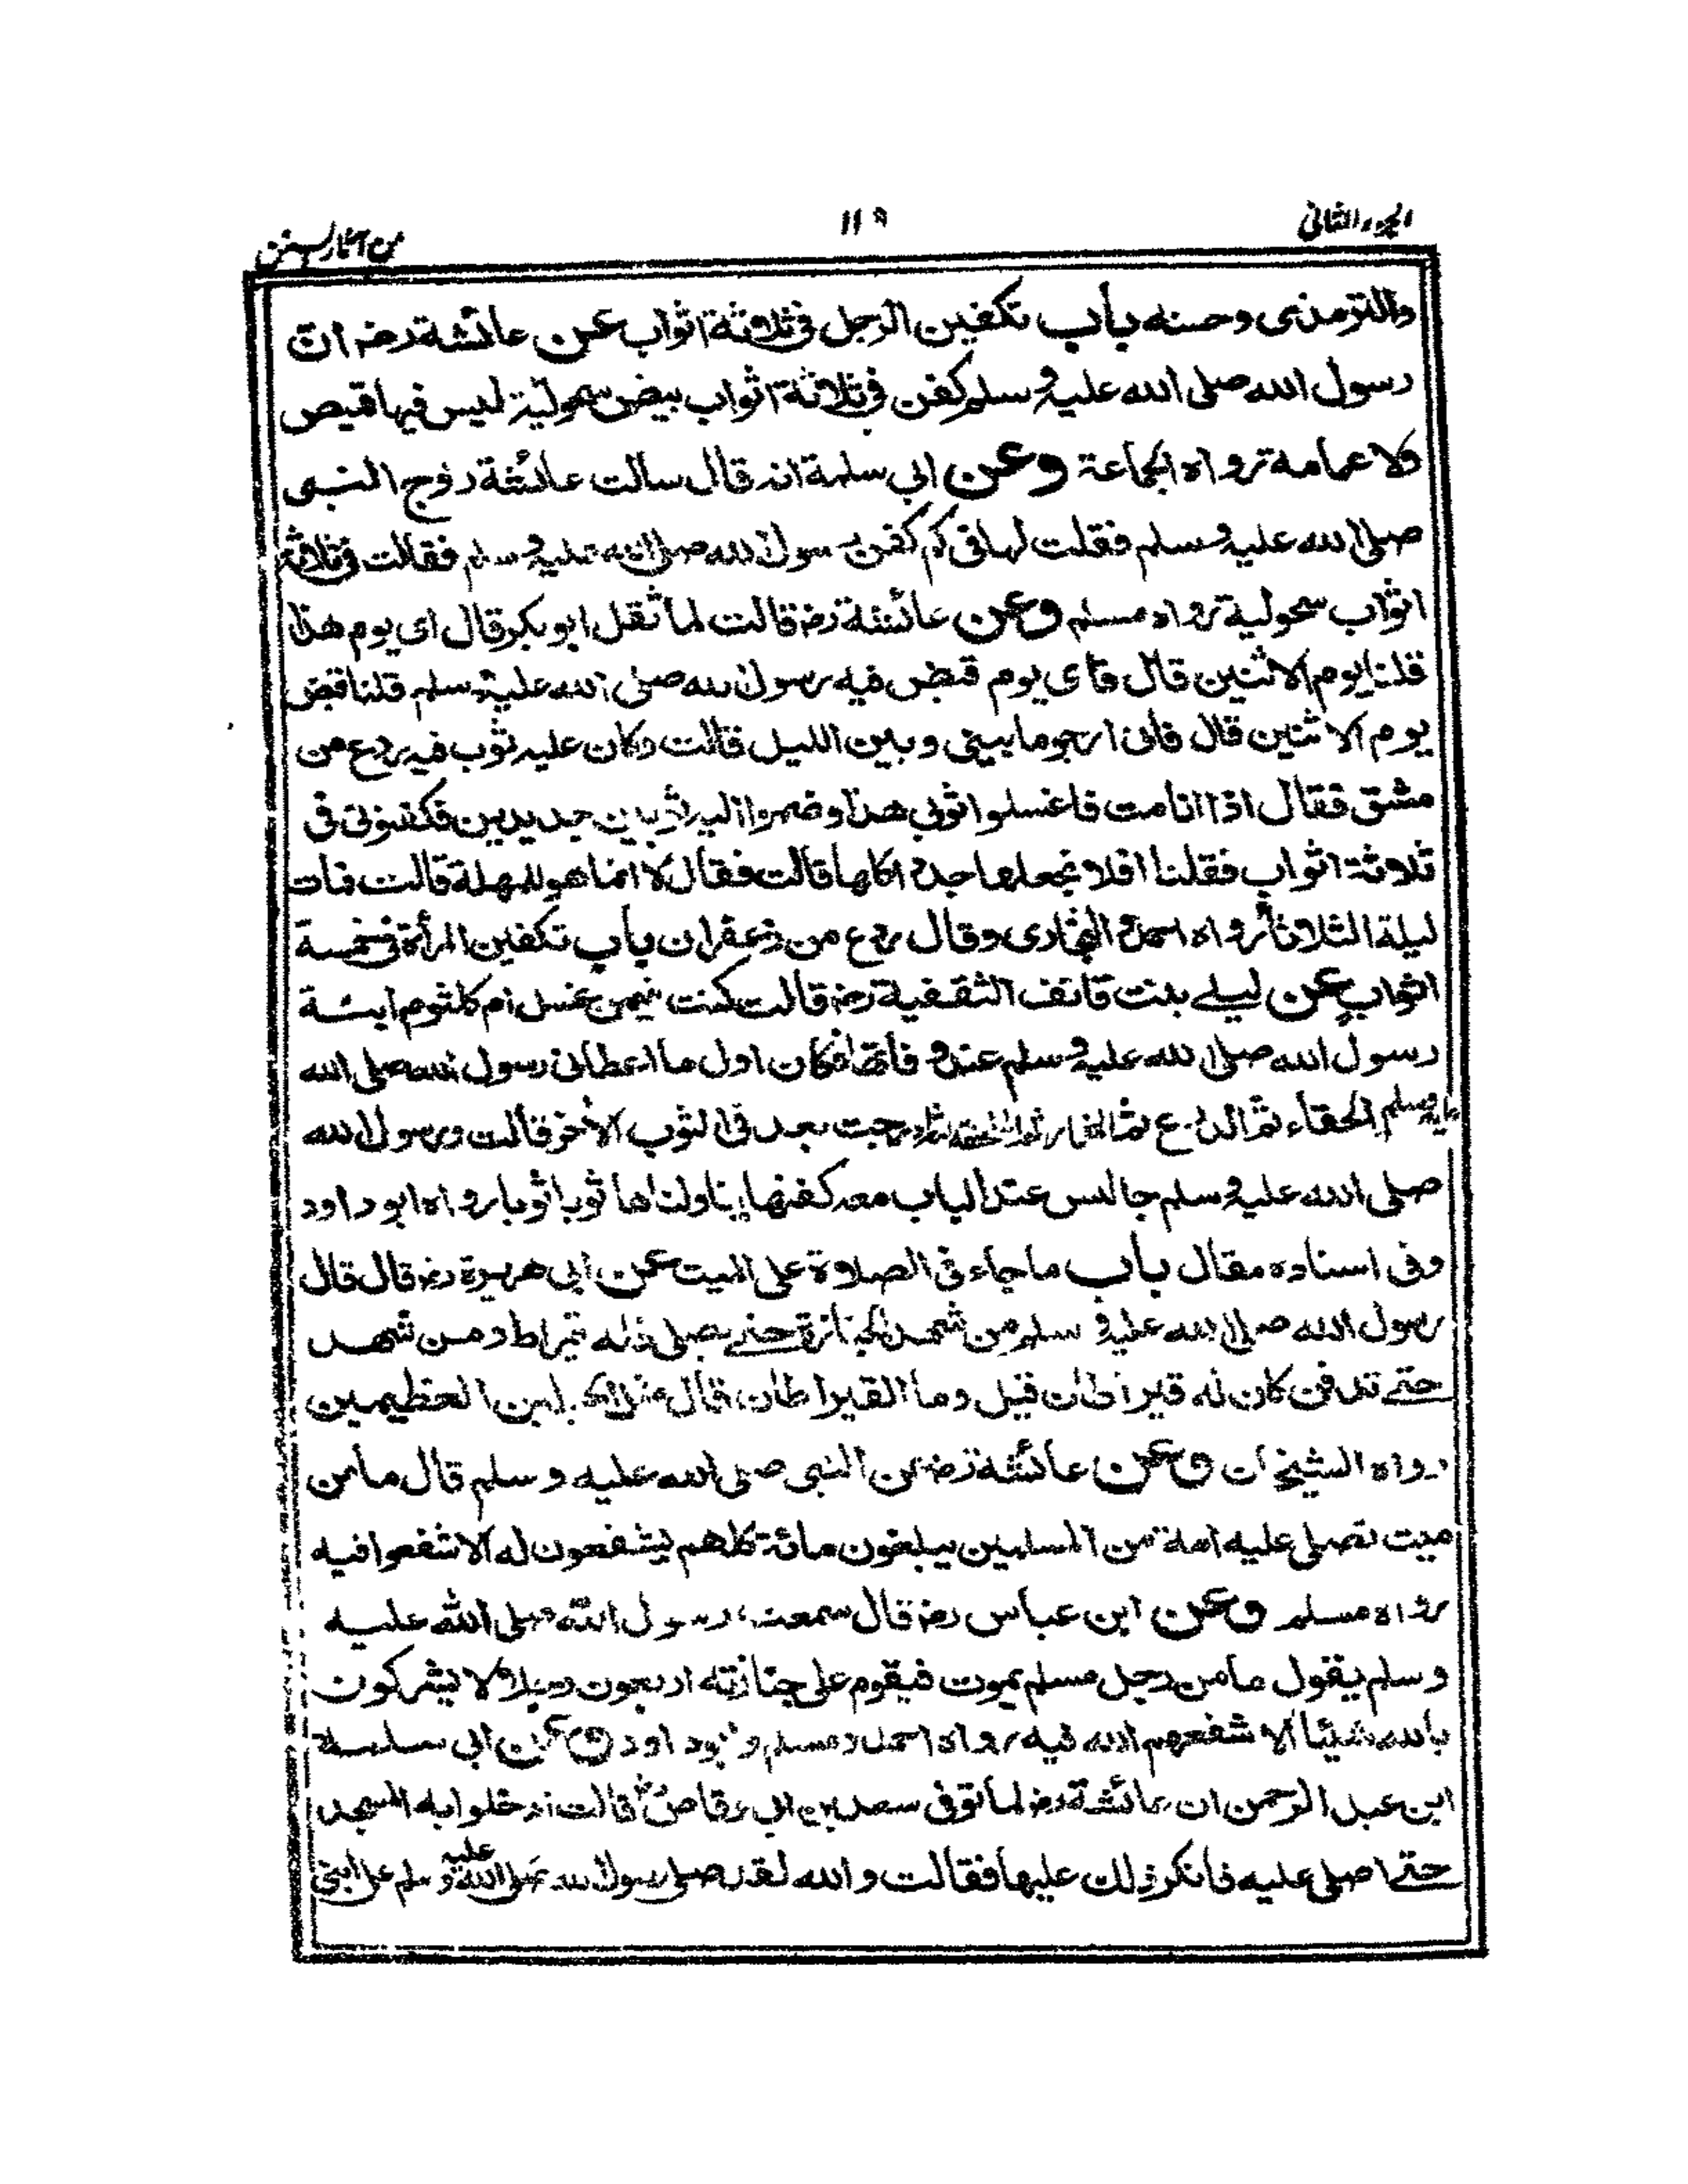 الجزء الثانى
١١٩
من آثار السنن
والترمذى وحسنه باب تكفين الرجل فى ثلاثة اثواب عن عائشة رضـ ان
رسول الله صلى الله عليه و سلم كفن فى ثلاثة اثواب بيض سحولية ليس فيها قميص
ولا عمامة رواه الجماعة وعن ابى سلمة انه قال سالت عائشة زوج النبى
صلى الله عليه و سلم فقلت لها فى كم كفن رسول الله صلى الله عليه و سلم فقالت فى ثلاثة
اثواب سحولية رواه مسلم وعن عائشة رضـ قالت لما ثقل ابو بكر قال اى يوم هذا
قلنا يوم الاثنين قال فاى يوم قبض فيه رسول الله صلى الله عليه و سلم قلنا قبض
يوم الاثنين قال فانى ارجو ما بينى و بين الليل قالت وكان عليه ثوب فيه ردع من
مشق فقال اذا انا مت فاغسلوا ثوبى هذا وضموا اليه ثوبين جديدين فكفنونى فى
ثلاثة اثواب فقلنا افلا نجعلها جددا كلها قالت فقال لا انما هو للمهلة قالت فمات
ليلة الثلاثاء رواه احمد والبخارى وقال ردع من زعفران باب تكفين المرأة فى خمسة
اثواب عن ليلے بنت قانف الثقفية رضـ قالت كنت فيمن غسل ام كلثوم ابنة
رسول الله صلى الله عليه و سلم عند وفاتها فكان اول ما اعطانى رسول الله صلى الله
عليه وسلم الحقاء ثم الدرع ثم الخمار ثم الملحفة ثم ادرجت بعد فى الثوب الآخر قالت ورسول الله
صلى الله عليه و سلم جالس عند الباب معه كفنها يناولناها ثوبا ثوبا رواه ابو داود
وفى اسناده مقال باب ما جاء فى الصلاة على الميت عن ابى هريرة رضـ قال قال
رسول الله صلى الله عليه و سلم من شهد الجنازة حتے يصلى فله قيراط ومن شهد
حتے تدفن كان له قيراطان قيل وما القيراطان قال مثل الجبلين العظيمين
رواه الشيخان وعن عائشة رضـ عن النبى صلى الله عليه و سلم قال ما من
ميت تصلى عليه امة من المسلمين يبلغون مائة كلهم يشفعون له الا شفعوا فيه
رواه مسلم وعن ابن عباس رضـ قال سمعت رسول الله صلى الله عليه
و سلم يقول ما من رجل مسلم يموت فيقوم على جنازته اربعون رجلا لا يشركون
بالله شيئا الا شفعهم الله فيه رواه احمد و مسلم و ابو داود وعن ابى سلمة
ابن عبد الرحمن ان عائشة رضـ لما توفى سعد بن ابى وقاص قالت ادخلوا به المسجد
حتے اصلى عليه فانكر ذلك عليها فقالت و الله لقد صلى رسول الله صلى الله عليه و سلم على ابنى